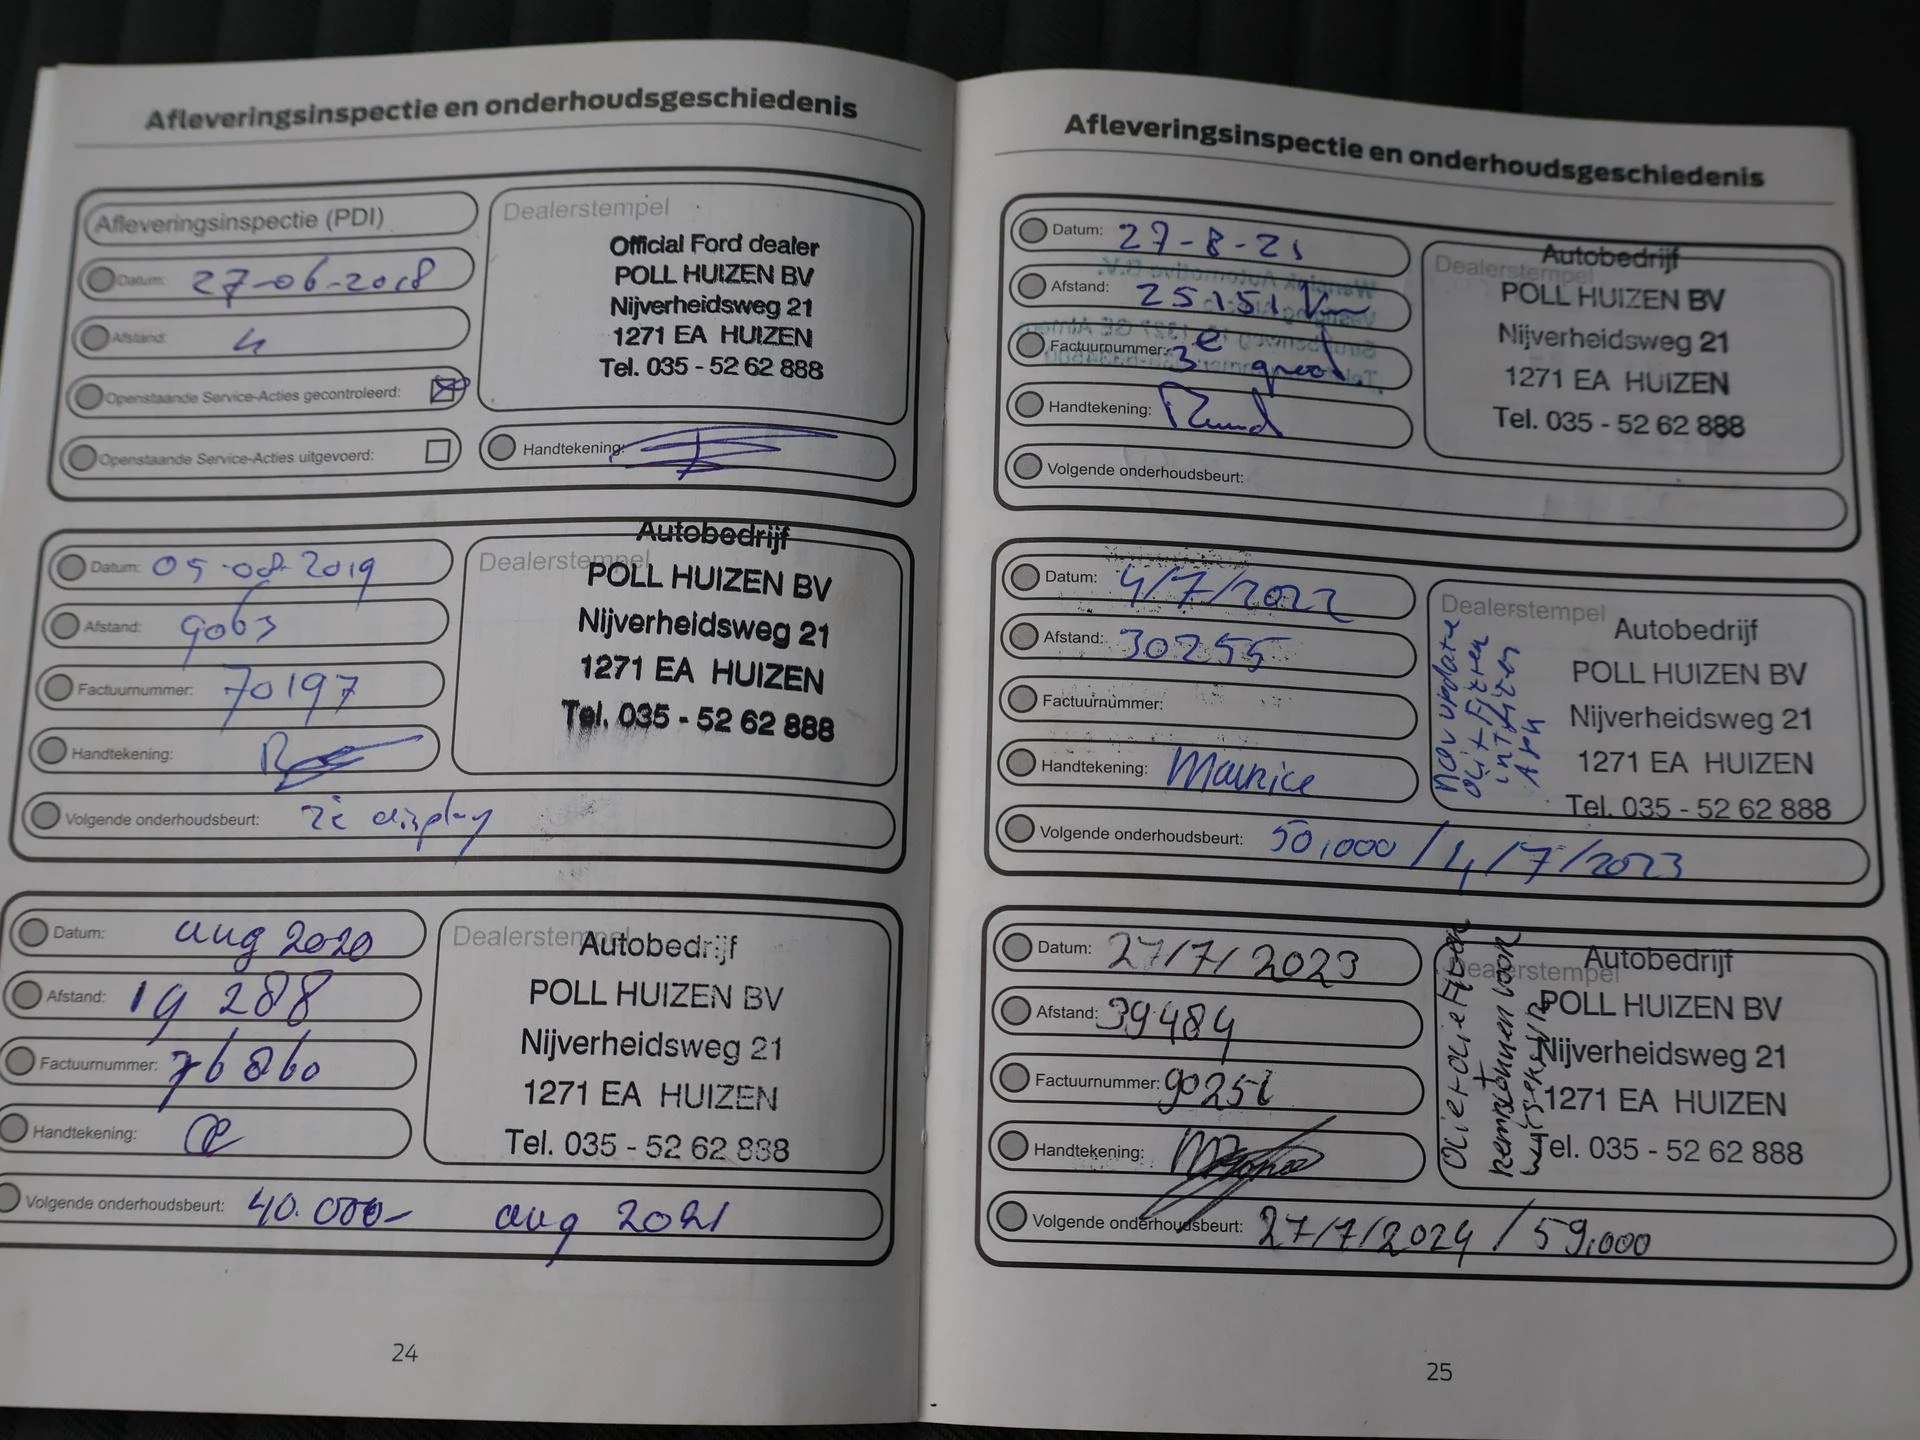 Afleveringsinspectie en onderhoudsgeschiedenis
Afleveringsinspectie (PDI)
Datum: 27-06-2018
Afstand: 4
Openstaande Service-Acties gecontroleerd:
Openstaande Service-Acties uitgevoerd:
Dealerstempel
Official Ford dealer
POLL HUIZEN BV
Nijverheidsweg 21
1271 EA HUIZEN
Tel. 035 - 52 62 888
Handtekening:
Datum: 05-08-2019
Afstand: 9063
Factuurnummer: 70197
Handtekening:
Dealerstempel
Autobedrijf
POLL HUIZEN BV
Nijverheidsweg 21
1271 EA HUIZEN
Tel. 035 - 52 62 888
Volgende onderhoudsbeurt: zie display
Datum: aug 2020
Afstand: 19 288
Factuurnummer: 76860
Handtekening:
Dealerstempel
Autobedrijf
POLL HUIZEN BV
Nijverheidsweg 21
1271 EA HUIZEN
Tel. 035 - 52 62 888
Volgende onderhoudsbeurt: 40.000- aug 2021
24
Afleveringsinspectie en onderhoudsgeschiedenis
Datum: 27-8-21
Afstand: 25151 Km
Factuurnummer: 3e groot
Handtekening: Ruud
Dealerstempel
Autobedrijf
POLL HUIZEN BV
Nijverheidsweg 21
1271 EA HUIZEN
Tel. 035 - 52 62 888
Volgende onderhoudsbeurt:
Datum: 4/7/2022
Afstand: 30255
Factuurnummer:
Handtekening: Maurice
Dealerstempel
Autobedrijf
POLL HUIZEN BV
Nijverheidsweg 21
1271 EA HUIZEN
Tel. 035 - 52 62 888
nav update
olie + Filter
int Filter
APK
Volgende onderhoudsbeurt: 50,000 / 4/7/2023
Datum: 27/7/2023
Afstand: 39484
Factuurnummer: 90251
Handtekening:
Dealerstempel
Autobedrijf
POLL HUIZEN BV
Nijverheidsweg 21
1271 EA HUIZEN
Tel. 035 - 52 62 888
olie + olie Filter
+
voor
Volgende onderhoudsbeurt: 27/7/2024 / 59,000
25